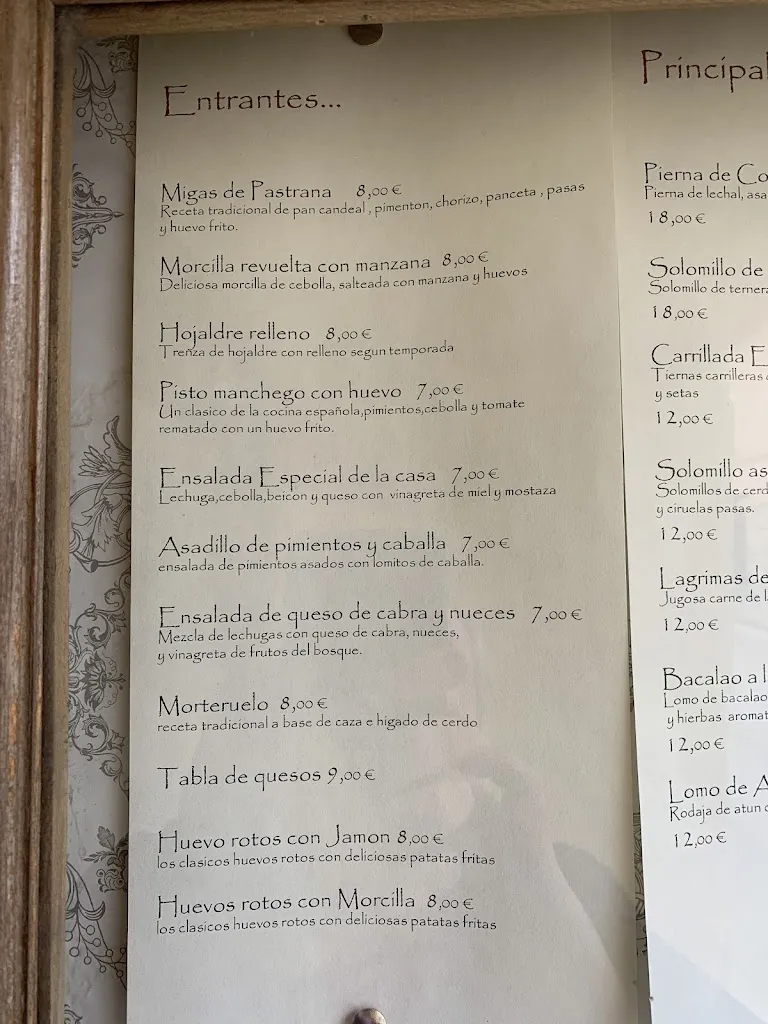 Entrantes...
Migas de Pastrana 8,00 €
Receta tradicional de pan candeal , pimenton, chorizo, panceta , pasas
y huevo frito.
Morcilla revuelta con manzana 8,00 €
Deliciosa morcilla de cebolla, salteada con manzana y huevos
Hojaldre relleno 8,00 €
Trenza de hojaldre con relleno segun temporada
Pisto manchego con huevo 7,00 €
Un clasico de la cocina española,pimientos,cebolla y tomate
rematado con un huevo frito.
Ensalada Especial de la casa 7,00 €
Lechuga,cebolla,beicon y queso con vinagreta de miel y mostaza
Asadillo de pimientos y caballa 7,00 €
ensalada de pimientos asados con lomitos de caballa.
Ensalada de queso de cabra y nueces 7,00 €
Mezcla de lechugas con queso de cabra, nueces,
y vinagreta de frutos del bosque.
Morteruelo 8,00 €
receta tradicional a base de caza e higado de cerdo
Tabla de quesos 9,00 €
Huevo rotos con Jamon 8,00 €
los clasicos huevos rotos con deliciosas patatas fritas
Huevos rotos con Morcilla 8,00 €
los clasicos huevos rotos con deliciosas patatas fritas
Principal
Pierna de Co
Pierna de lechal, asa
18,00 €
Solomillo de
Solomillo de ternera
18,00 €
Carrillada E
Tiernas carrilleras
y setas
12,00 €
Solomillo as
Solomillos de cerd
y ciruelas pasas.
12,00 €
Lagrimas de
Jugosa carne de l
12,00 €
Bacalao a l
Lomo de bacalao
y hierbas aromat
12,00 €
Lomo de A
Rodaja de atun
12,00 €